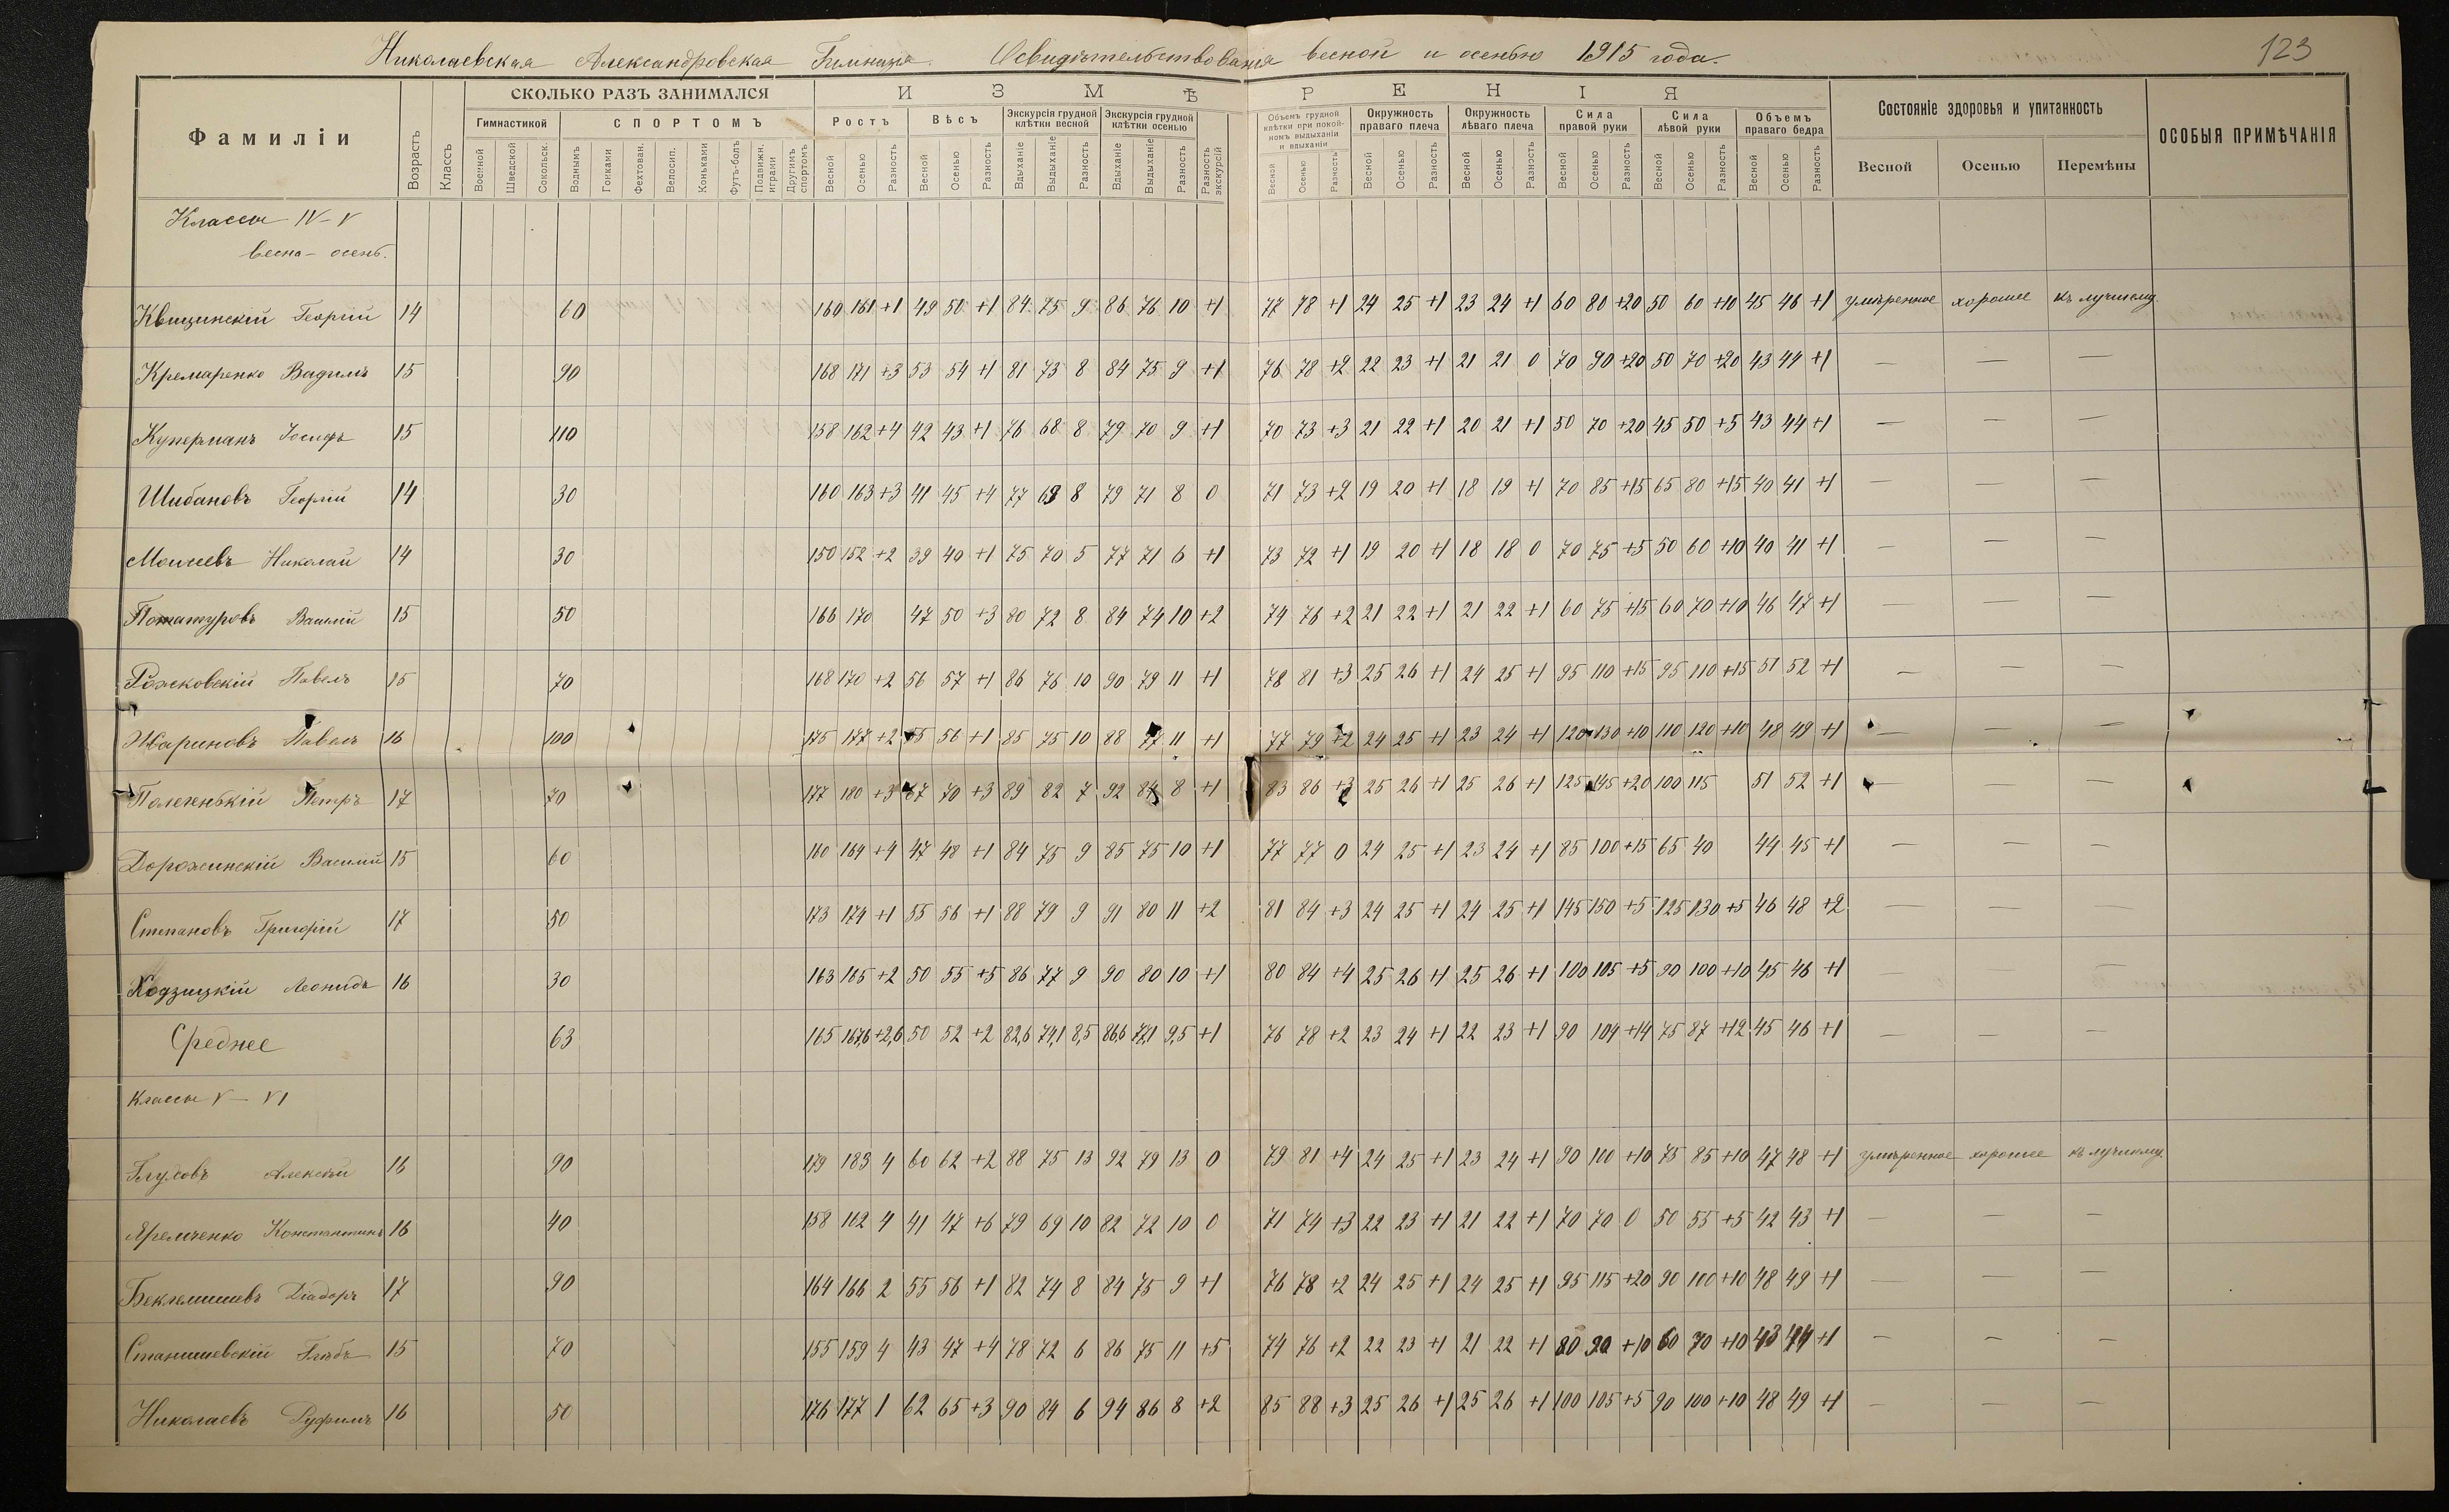 Николаевская Александровская Гимназія. Освидѣтельствованія весной и осенью 1915 года.
123
Фамиліи Возрастъ Классъ СКОЛЬКО РАЗЪ ЗАНИМАЛСЯ И З М Ѣ Р Е Н І Я Состояніе здоровья и упитанность ОСОБЫЯ ПРИМѢЧАНІЯ
Гимнастикой СПОРТОМЪ Ростъ Вѣсъ Экскурсія грудной клѣтки весной Экскурсія грудной клѣтки осенью Разность экскурсій Объемъ грудной клѣтки при покойномъ выдыханіи и вдыханіи Окружность праваго плеча Окружность лѣваго плеча Сила правой руки Сила лѣвой руки Объемъ праваго бедра
Военной Шведской Сокольск. Воднымъ Гонками Фехтован. Велосип. Коньками Футъ-болъ Подвижн. играми Другимъ спортомъ Весной Осенью Разность Весной Осенью Разность Вдыханіе Выдыханіе Разность Вдыханіе Выдыханіе Разность Весной Осенью Разность Весной Осенью Разность Весной Осенью Разность Весной Осенью Разность Весной Осенью Разность Весной Осенью Разность Весной Осенью Перемѣны
Классы IV–V
весна – осень.
Квицинскій Георгій 14 60 160 161 +1 49 50 +1 84 75 9 86 76 10 +1 77 78 +1 24 25 +1 23 24 +1 60 80 +20 50 60 +10 45 46 +1 умѣренное хорошее къ лучшему.
Кремаренко Вадимъ 15 90 168 171 +3 53 54 +1 81 73 8 84 75 9 +1 76 78 +2 22 23 +1 21 21 0 70 90 +20 50 70 +20 43 44 +1 — — —
Куперманъ Іосифъ 15 110 158 162 +4 42 43 +1 76 68 8 79 70 9 +1 70 73 +3 21 22 +1 20 21 +1 50 70 +20 45 50 +5 43 44 +1 — — —
Шибановъ Георгій 14 30 160 163 +3 41 45 +4 77 69 8 79 71 8 0 71 73 +2 19 20 +1 18 19 +1 70 85 +15 65 80 +15 40 41 +1 — — —
Моисеевъ Николай 14 30 150 152 +2 39 40 +1 75 70 5 77 71 6 +1 73 72 +1 19 20 +1 18 18 0 70 75 +5 50 60 +10 40 41 +1 — — —
Потатуровъ Василій 15 50 166 170 47 50 +3 80 72 8 84 74 10 +2 74 76 +2 21 22 +1 21 22 +1 60 75 +15 60 70 +10 46 47 +1 — — —
Рожковскій Павелъ 15 70 168 170 +2 56 57 +1 86 76 10 90 79 11 +1 78 81 +3 25 26 +1 24 25 +1 95 110 +15 95 110 +15 51 52 +1 — — —
Жариновъ Павелъ 16 100 175 177 +2 55 56 +1 85 75 10 88 77 11 +1 77 79 +2 24 25 +1 23 24 +1 120 130 +10 110 120 +10 48 49 +1 — — —
Полегенькій Петръ 17 70 177 180 +3 67 70 +3 89 82 7 92 84 8 +1 83 86 +3 25 26 +1 25 26 +1 125 145 +20 100 115 51 52 +1 — — —
Дорожинскій Василій 15 60 160 164 +4 47 48 +1 84 75 9 85 75 10 +1 77 77 0 24 25 +1 23 24 +1 85 100 +15 65 40 44 45 +1 — — —
Степановъ Григорій 17 50 173 174 +1 55 56 +1 88 79 9 91 80 11 +2 81 84 +3 24 25 +1 24 25 +1 145 150 +5 125 130 +5 46 48 +2 — — —
Ходзицкій Леонидъ 16 30 163 165 +2 50 55 +5 86 77 9 90 80 10 +1 80 84 +4 25 26 +1 25 26 +1 100 105 +5 90 100 +10 45 46 +1 — — —
Среднее 63 165 167,6 +2,6 50 52 +2 82,6 74,1 8,5 86,6 77,1 9,5 +1 76 78 +2 23 24 +1 22 23 +1 90 104 +14 75 87 +12 45 46 +1 — — —
Классы V – VI
Глудовъ Алексѣй 16 90 179 183 4 60 62 +2 88 75 13 92 79 13 0 79 81 +4 24 25 +1 23 24 +1 90 100 +10 75 85 +10 47 48 +1 умѣренное хорошее къ лучшему.
Яремченко Константинъ 16 40 158 162 4 41 47 +6 79 69 10 82 72 10 0 71 74 +3 22 23 +1 21 22 +1 70 70 0 50 55 +5 42 43 +1 — — —
Беклемишевъ Діадоръ 17 90 164 166 2 55 56 +1 82 74 8 84 75 9 +1 76 78 +2 24 25 +1 24 25 +1 95 115 +20 90 100 +10 48 49 +1 — — —
Станишевскій Глѣбъ 15 70 155 159 4 43 47 +4 78 72 6 86 75 11 +5 74 76 +2 22 23 +1 21 22 +1 80 90 +10 60 70 +10 43 44 +1 — — —
Николаевъ Руфимъ 16 50 176 177 1 62 65 +3 90 84 6 94 86 8 +2 85 88 +3 25 26 +1 25 26 +1 100 105 +5 90 100 +10 48 49 +1 — — —